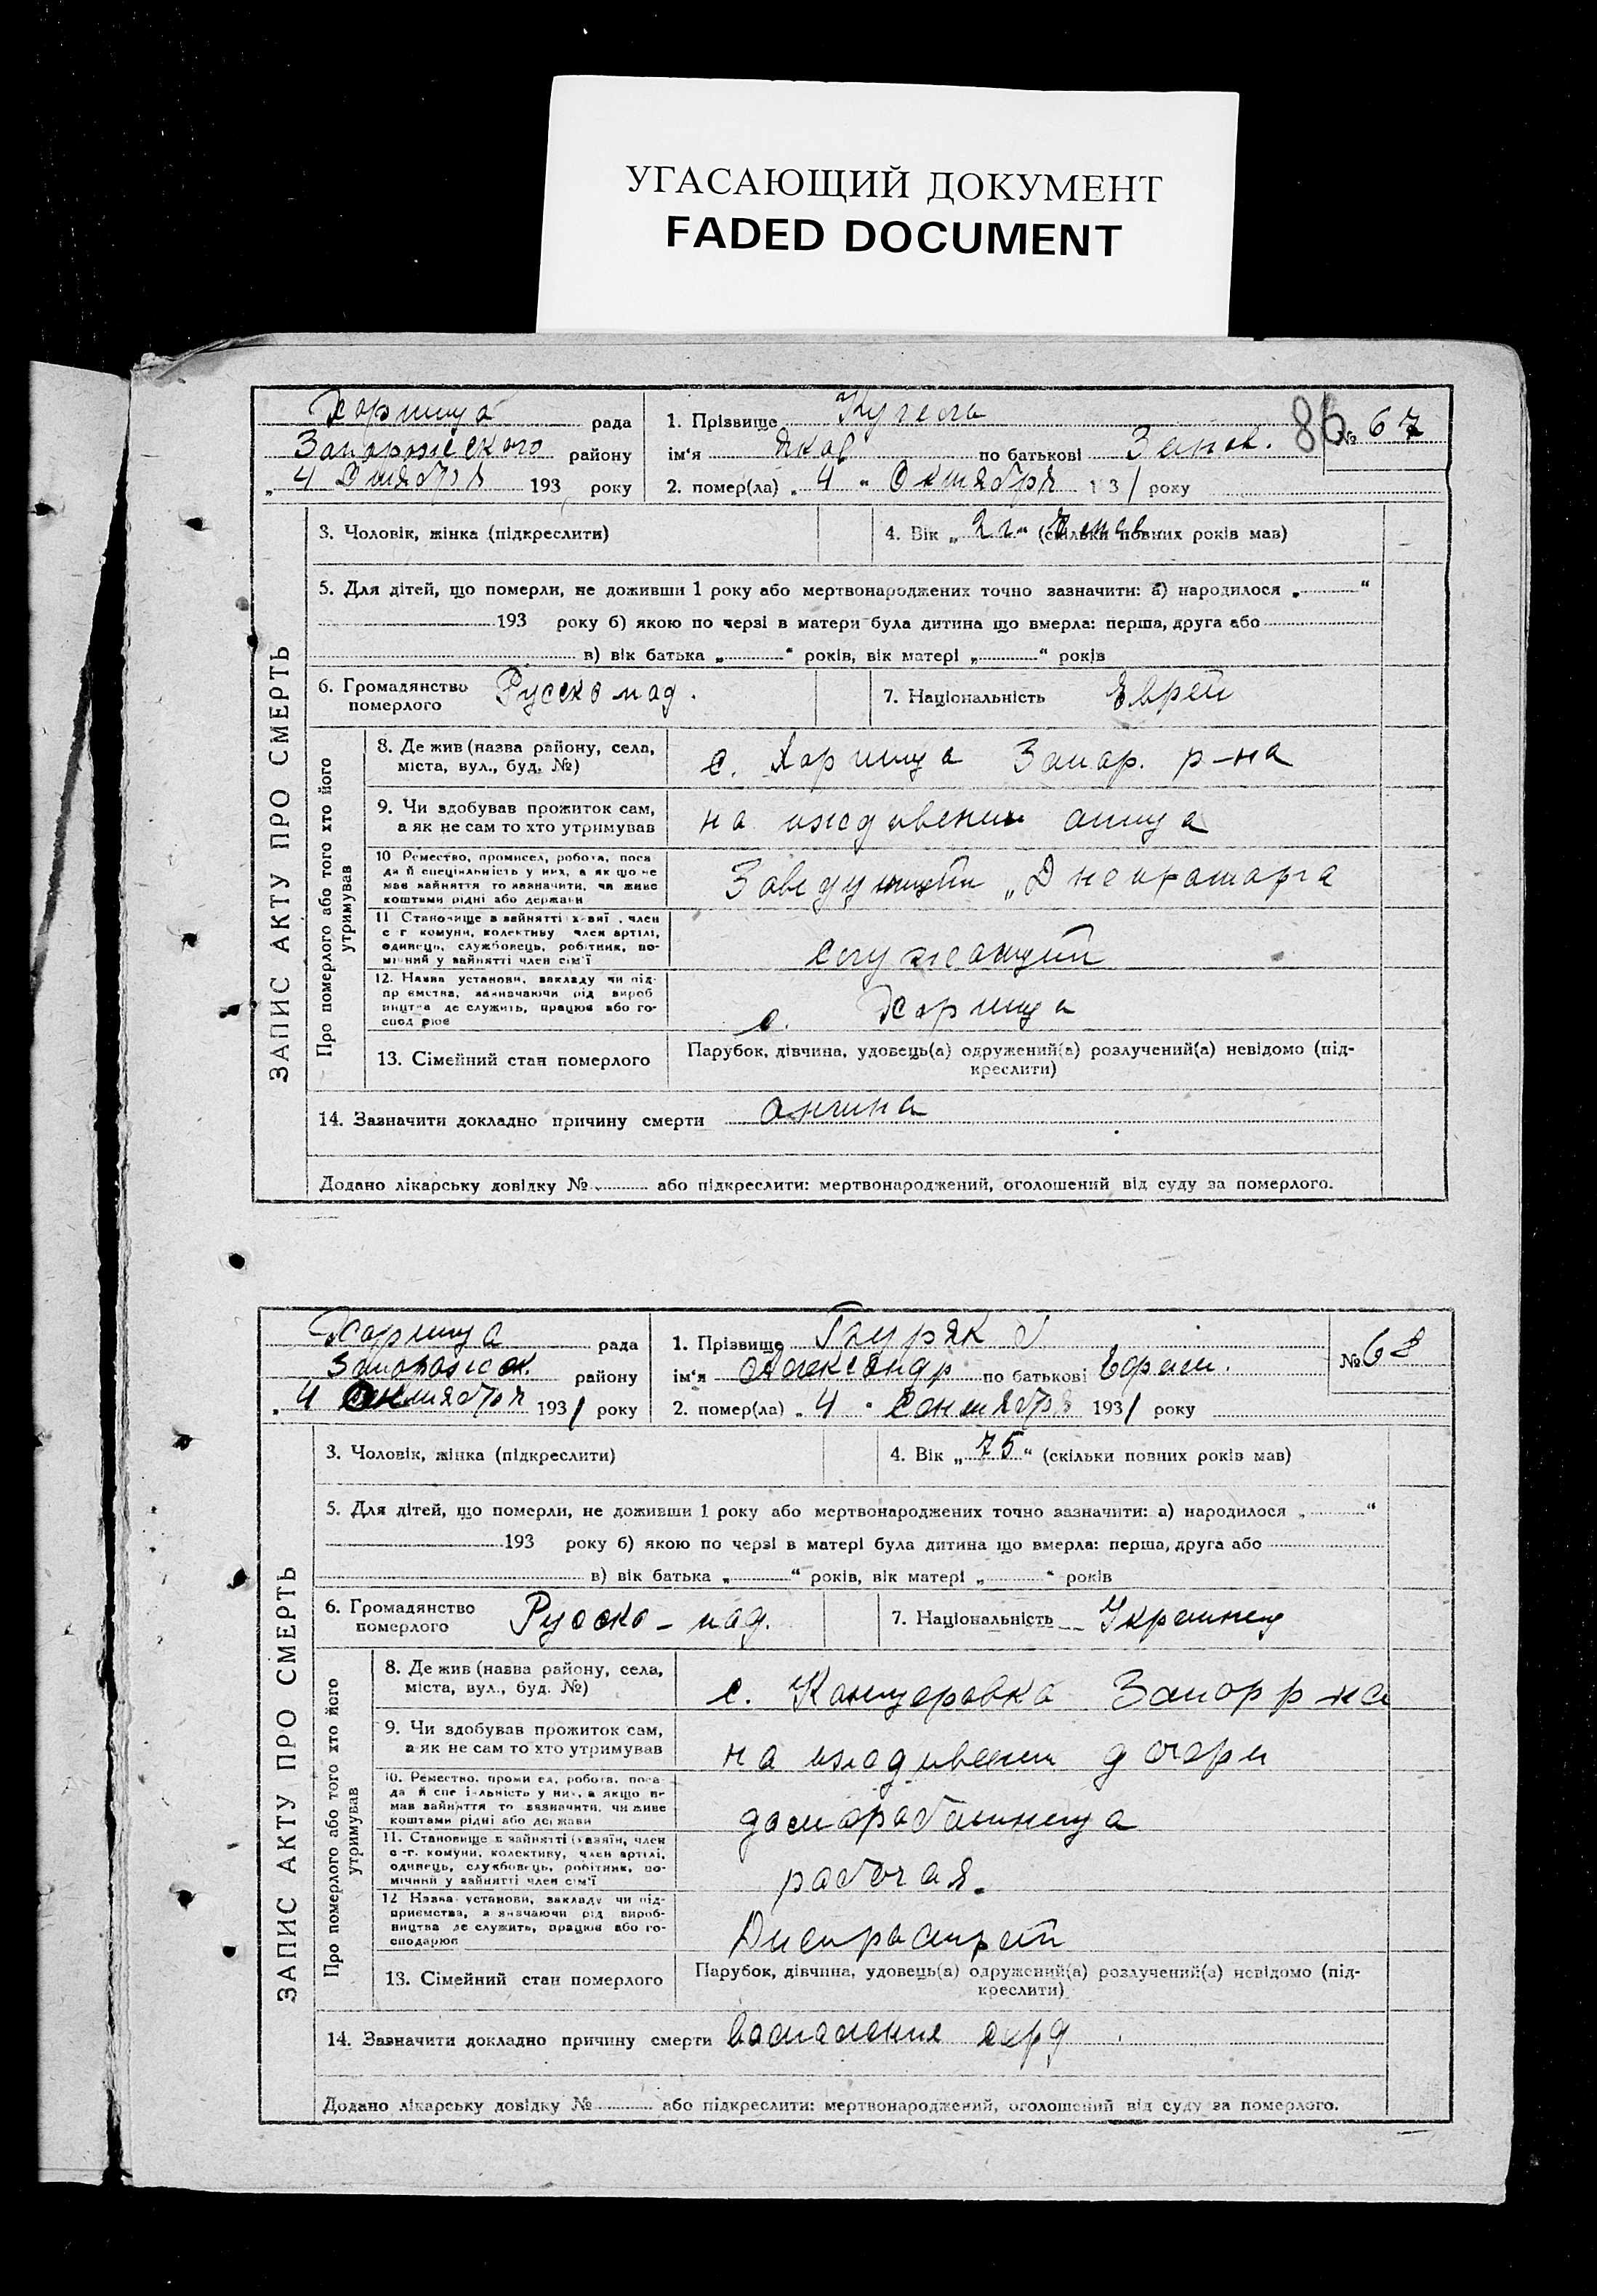 УГАСАЮЩИЙ ДОКУМЕНТ
FADED DOCUMENT
86
Хортица рада
Запорожского району
„4 Октября 193 року
1. Прізвище
ім'я Яков по батькові Зинов.
№ 67
2. помер(ла) „4" Октября 1931 року
3. Чоловік, жінка (підкреслити)
4. Вік „2 г." (скільки повних років мав)
5. Для дітей, що померли, не доживши 1 року або мертвонароджених точно зазначити: а) народилося „ "
193 року б) якою по черзі в матери була дитина що вмерла: перша, друга або
в) вік батька „ " років, вік матері „ " років
6. Громадянство померлого Русско под.
7. Національність Еврей
ЗАПИС АКТУ ПРО СМЕРТЬ
Про померлого або того хто його утримував
8. Де жив (назва району, села,
міста, вул., буд. №)
с. Хортица Запор. р-на
9. Чи здобував прожиток сам,
а як не сам то хто утримував
на иждивении отца
10 Ремество, промисел, робота, поса
да й спеціяльність у них, а як що не
мав зайняття то зазначити, чи живе
коштами рідні або держави
Заведующий „Днепроторга
11 Становище в зайнятті хазяї , член
с г комуни, колективу член артілі,
одинець, службовець, робітник, по-
мічний у зайнятті член сім'ї
служащий
12. Назва установи, закладу чи під-
пр ємства, зазначаючи рід вироб
ництва де служить, працює або го-
спод рює
с. Хортица
13. Сімейний стан померлого
Парубок, дівчина, удовець(а) одружений(а) розлучений(а) невідомо (під-
креслити)
14. Зазначити докладно причину смерти ангина
Додано лікарську довідку № або підкреслити: мертвонароджений, оголошений від суду за померлого.
Хортица рада
Запорожск. району
„4 Октября 1931 року
1. Прізвище
ім'я Александр по батькові Ефим.
№ 68
2. помер(ла) „4" Октября 1931 року
3. Чоловік, жінка (підкреслити)
4. Вік „75" (скільки повних років мав)
5. Для дітей, що померли, не доживши 1 року або мертвонароджених точно зазначити: а) народилося „ "
193 року б) якою по черзі в матері була дитина що вмерла: перша, друга або
в) вік батька „ " років, вік матері „ " років
6. Громадянство померлого Русско - под.
7. Національність Украинец
ЗАПИС АКТУ ПРО СМЕРТЬ
Про померлого або того хто його утримував
8. Де жив (назва району, села,
міста, вул., буд. №)
с. Канцеровка Запор р-на
9. Чи здобував прожиток сам,
а як не сам то хто утримував
на иждивении дочери
10. Ремество, проми ел, робота, поса-
да й спе і-льність у них, а якщо не
мав зайняття то зазначити, чи живе
коштами рідні або держави
домоработница
11. Становище в зайнятті (хазяїн, член
с-г. комуни, колективу, член артілі,
одинець, службовець, робітник, по-
мічний у зайнятті член сім'ї
рабочая.
12 Назва установи, закладу чи під-
приємства, зазначаючи рід вироб-
ництва де служить, працює або го-
сподарює
Днепрострой
13. Сімейний стан померлого
Парубок, дівчина, удовець(а) одружений(а) розлучений(а) невідомо (під-
креслити)
14. Зазначити докладно причину смерти воспаление серд
Додано лікарську довідку № або підкреслити: мертвонароджений, оголошений від суду за померлого.